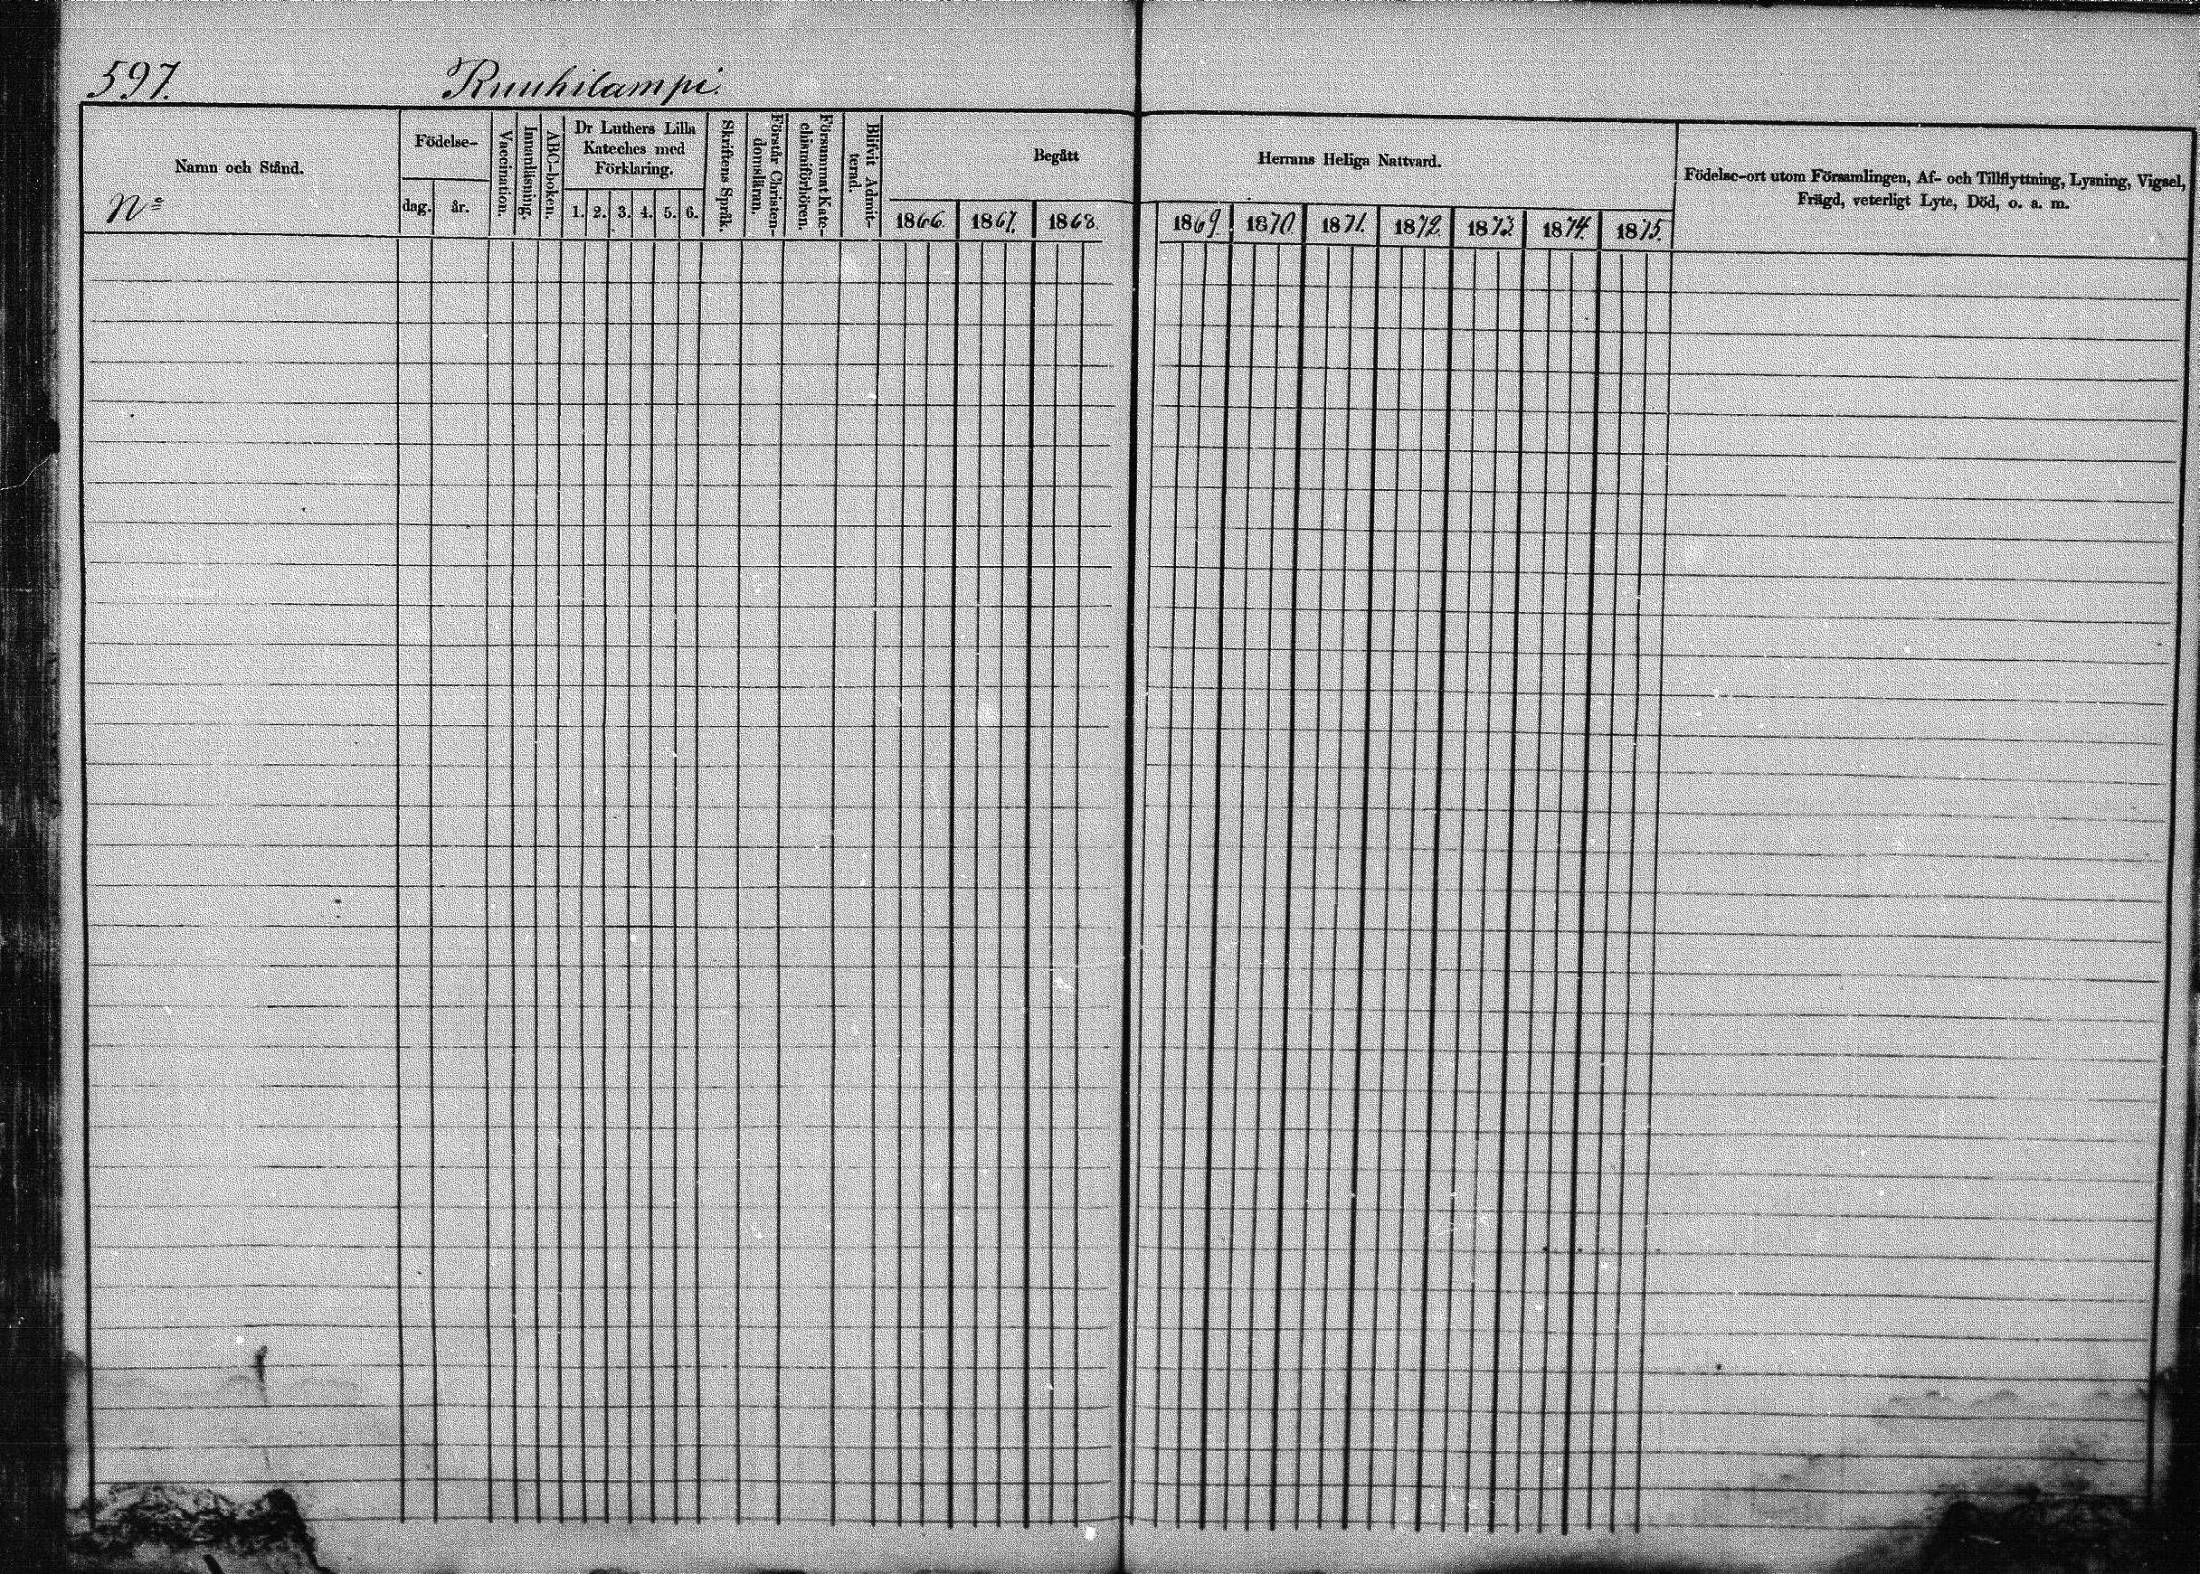 597.
Ruuhilampi.
Namn och Stånd.
No
Födelse-
dag.
år.
Vaccination.
Innanläsning.
ABC-boken.
Dr Luthers Lilla
Kateches med
Förklaring.
1. 2. 3. 4. 5. 6.
Skriftens Språk.
Förstår Christen-
domslären.
Försummat Kate-
chismiförhören.
Blifvit Admit-
terad.
Begått
1866. 1867. 1868.
Herrans Heliga Nattvard.
1869. 1870. 1871. 1872. 1873 1874. 1875.
Födelse-ort utom Församlingen, Af- och Tillflyttning, Lysning, Vigsel,
Frägd, veterligt Lyte, Död, o. s. m.